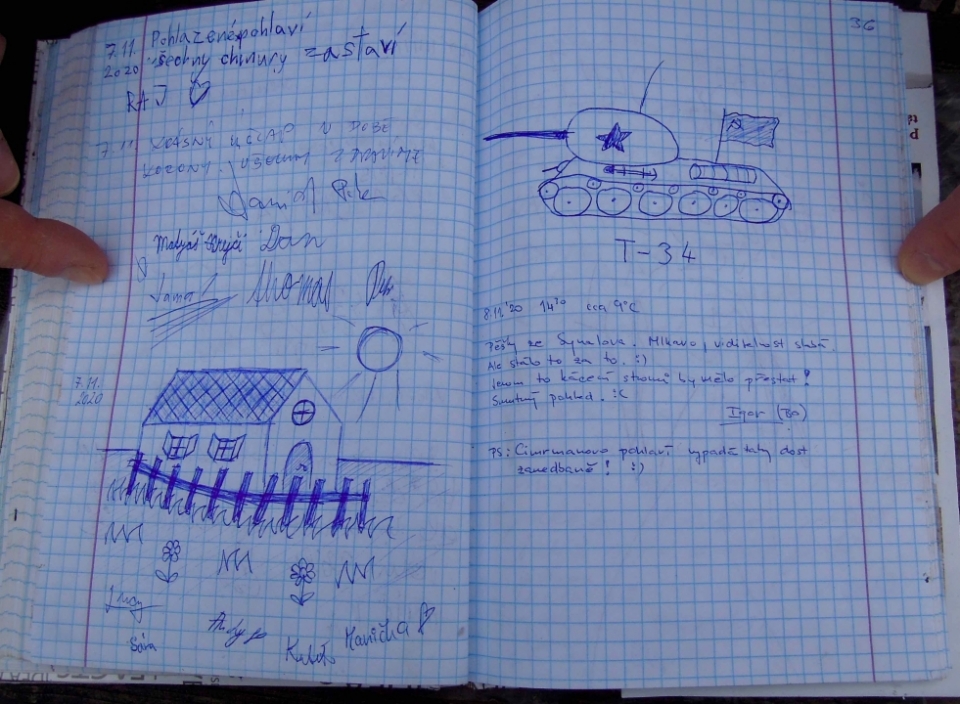 7.11. Pohlazené pohlaví
2020 všechny chmury zastaví
RAJ
7.11. KRÁSNÝ VÝŠLAP V DOBĚ
KORONY. VŠECHNY ZDRAVÍME
Dan
Thomas
7.11.
2020
Sára
Hanička
36
T-34
8.11.'20 14³⁰ cca 9°C
Pěšky ze Synalova. Mlhavo, viditelnost slabá.
Ale stálo to za to. :)
Jenom to kácení stromů by mělo přestat!
Smutný pohled. :(
Igor (Bo)
PS: Cimrmanovo pohlaví vypadá taky dost
zanedbaně! :)